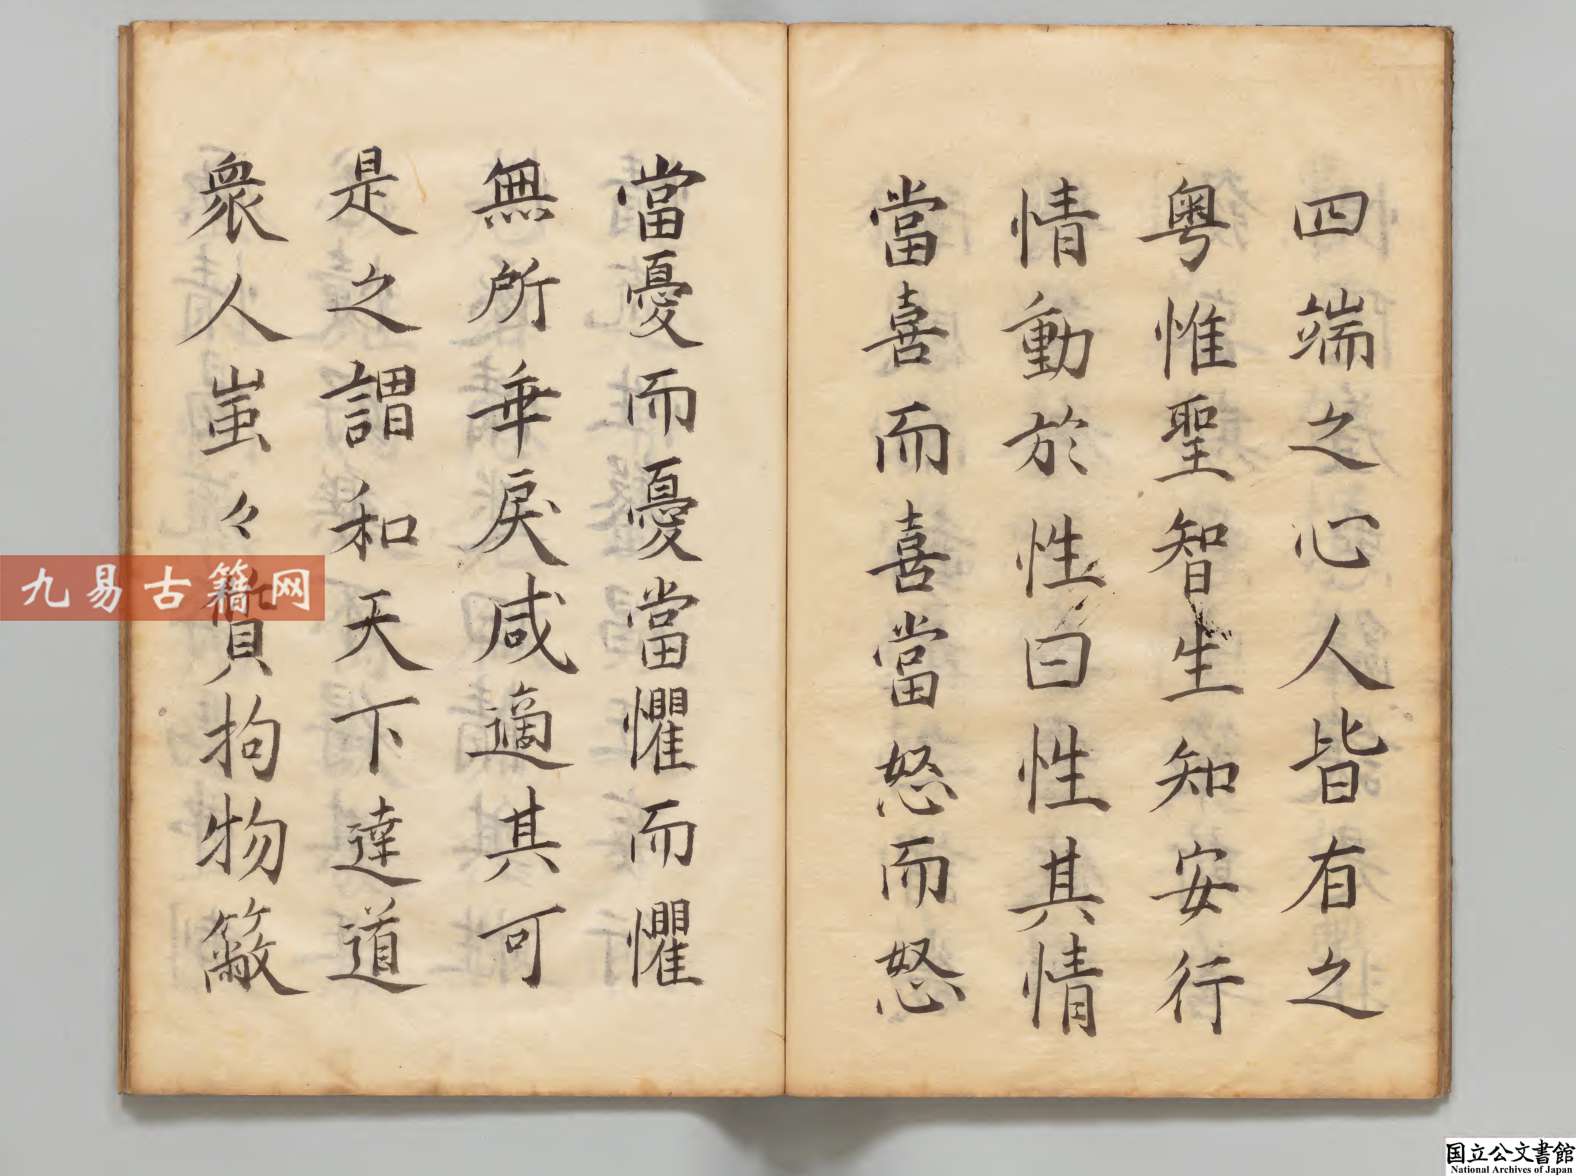 四端之心人皆有之
粤惟聖智生知安行
情動於性曰性其情
當喜而喜當怒而怒
當憂而憂當懼而懼
無所乖戾咸適其可
是之謂和天下達道
衆人蚩々質拘物蔽
九易古籍网
国立公文書館
National Archives of Japan